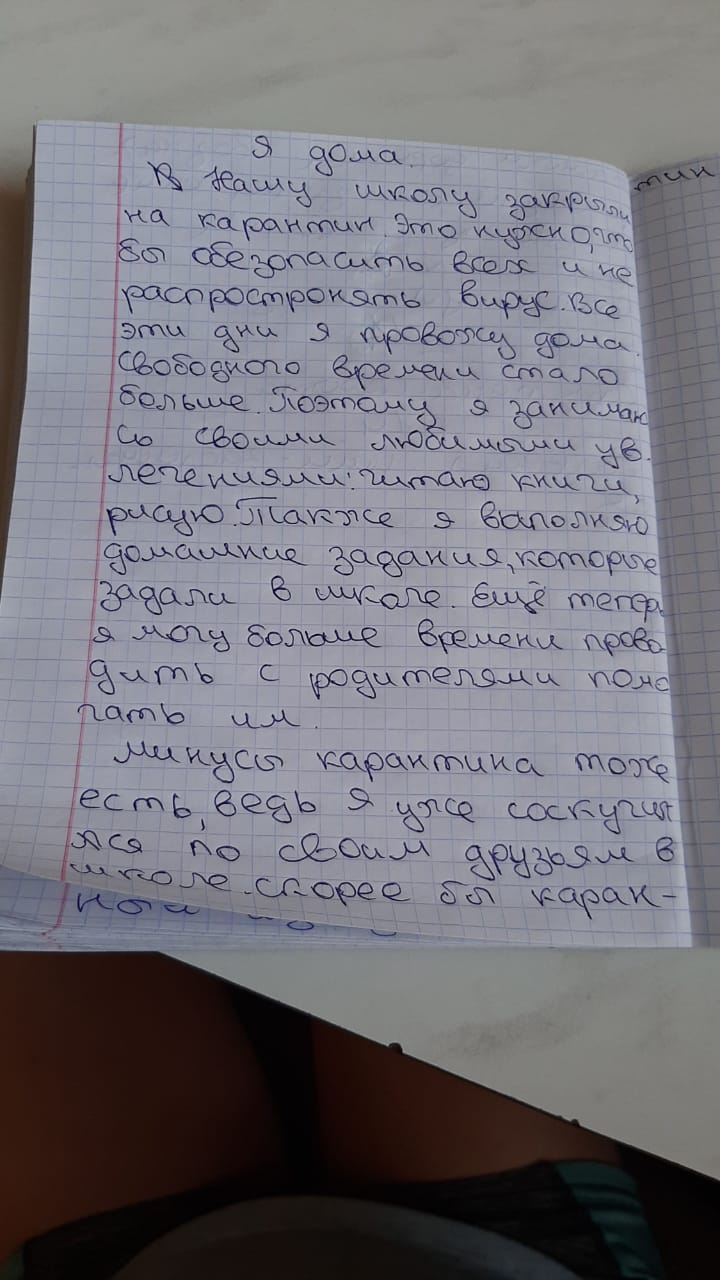 Я дома.
В нашу школу закрыли
на карантин. Это нужно, что
бы обезопасить всех и не
распростронять вирус. Все
эти дни я провожу дома.
Свободного времени стало
больше. Поэтому я занимаю
сь своими любимыми ув.
лечениями: читаю книги,
рисую. Также я выполняю
домашние задания, которые
задали в школе. Ещё тепер
я могу больше времени прово
дить с родителями помо
гать им.
минусы карантина тоже
есть, ведь я уже соскучил
лся по своим друзьям в
школе. скорее бы каран-
тин